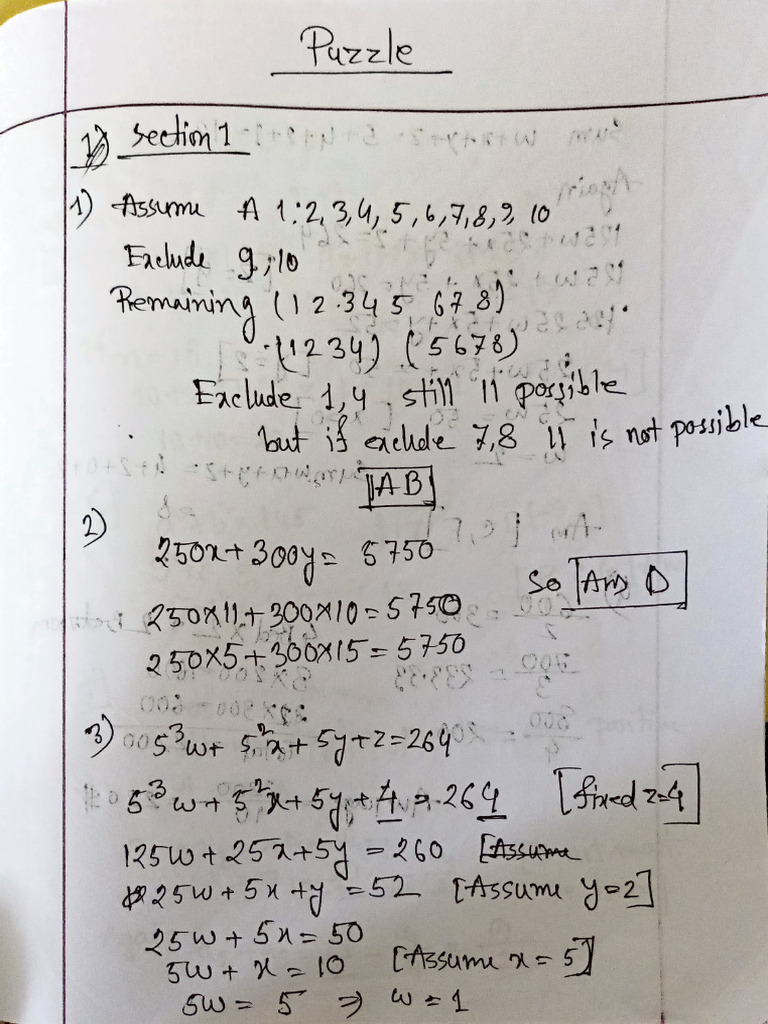 Puzzle
1) Section 1
1) Assume A 1:2,3,4, 5,6,7,8,9, 10
Exclude 9,10
Remaining (1 2 3 4 5 6 7 8)
(1 2 3 4) (5 6 7 8)
Exclude 1,4 still 11 possible
but if exclude 7,8 11 is not possible
AB
2)
250x + 300y = 5750
So Ans D
250×11 + 300×10 = 5750
250×5 + 300×15 = 5750
3) 5³w + 5²x + 5y + z = 264
5³w + 5²x + 5y + 4 = 264 [fixed z=4]
125w + 25x + 5y = 260 [Assume
25w + 5x + y = 52 [Assume y=2]
25w + 5x = 50
5w + x = 10 [Assume x = 5]
5w = 5 ⇒ w = 1